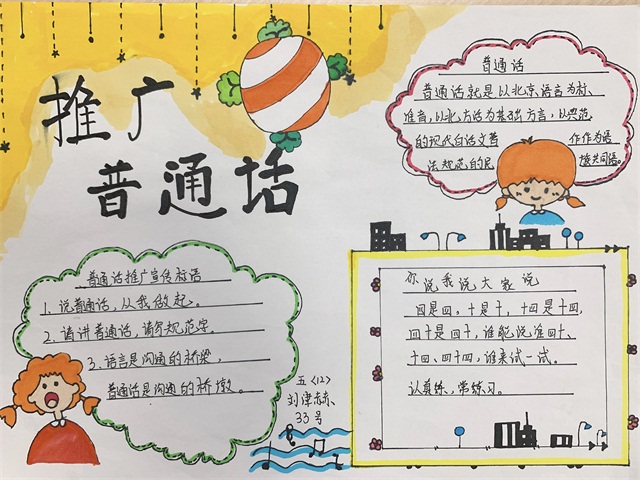 推广
普通话
普通话
普通话就是以北京语言为村、
准音，以北方话为基础方言，以典范
的现代白话文著 作作为语
法规范的民 族共同语。
普通话推广宣传标语
1. 说普通话，从我做起。
2. 请讲普通话，请写规范字。
3. 语言是沟通的桥梁，
普通话是沟通的桥墩。
五〈12〉
刘津赫
33号
你说我说大家说
四是四，十是十，十四是十四，
四十是四十，谁能说准四十、
十四、四十四，谁来试一试。
认真练，常练习。